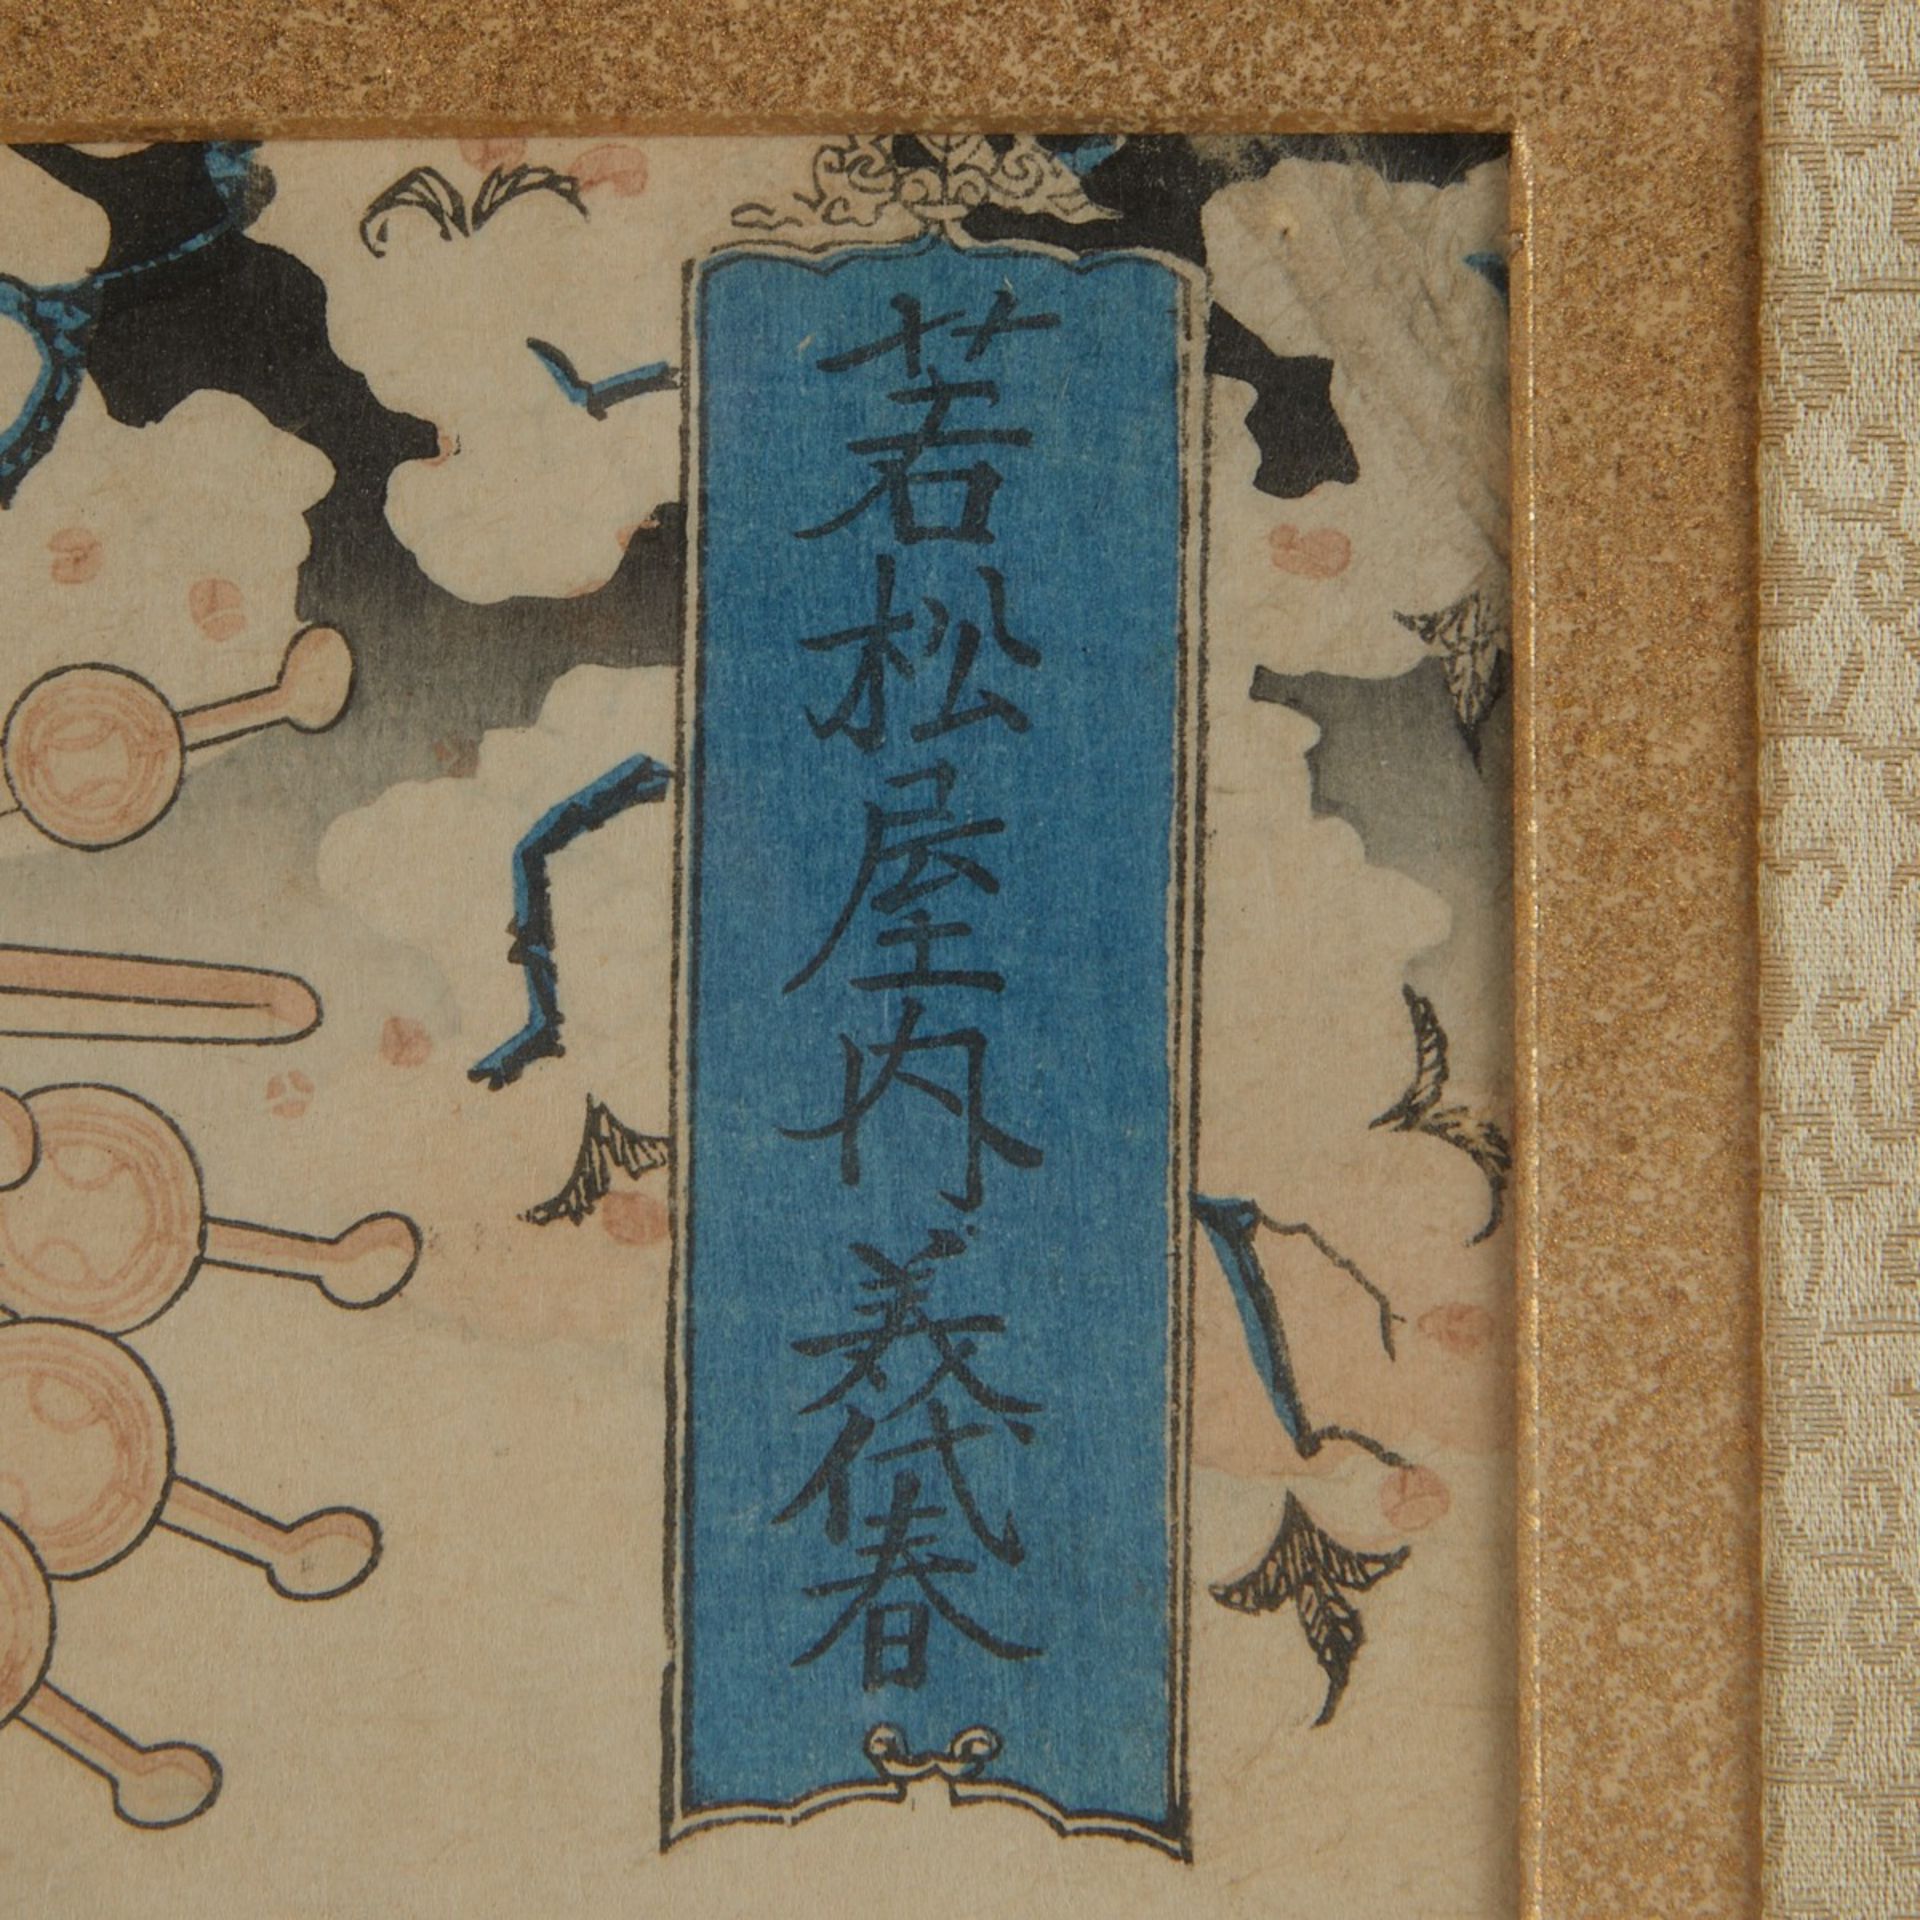 若松屋内義代春